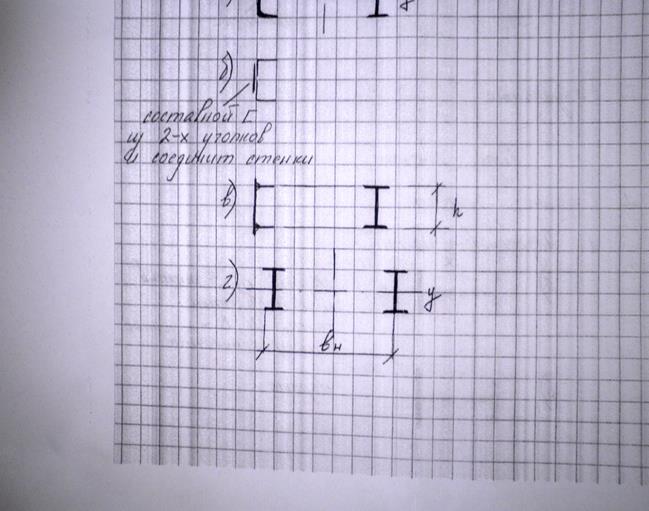 б)
составной [
из 2-х уголков
и соединит стенки
в)
h
г)
y
bн